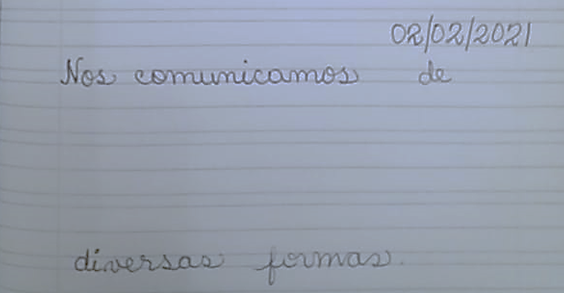 02/02/2021
Nos comunicamos de
diversas formas.